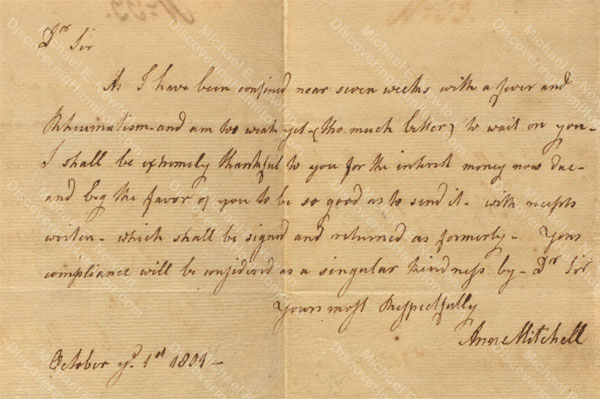 Dr Sir
As I have been confined near seven weeks with a fever and
Rheumatism - and am to weak yet - (tho much better) to wait on you -
I shall be extremely thankful to you for the interest money now due -
and beg the favor of you to be so good as to send it - with receipts
writen - which shall be signed and returned as formerly - Your
compliance will be considered as a singular kindness by - Dr Sir
Yours most Respectfully
Anne Mitchell
October ye. 1st 1801 -